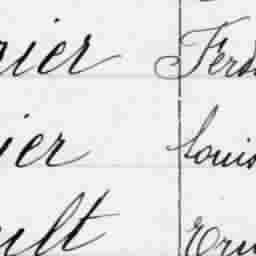 rier Ferd
ier Louis
ult Ern